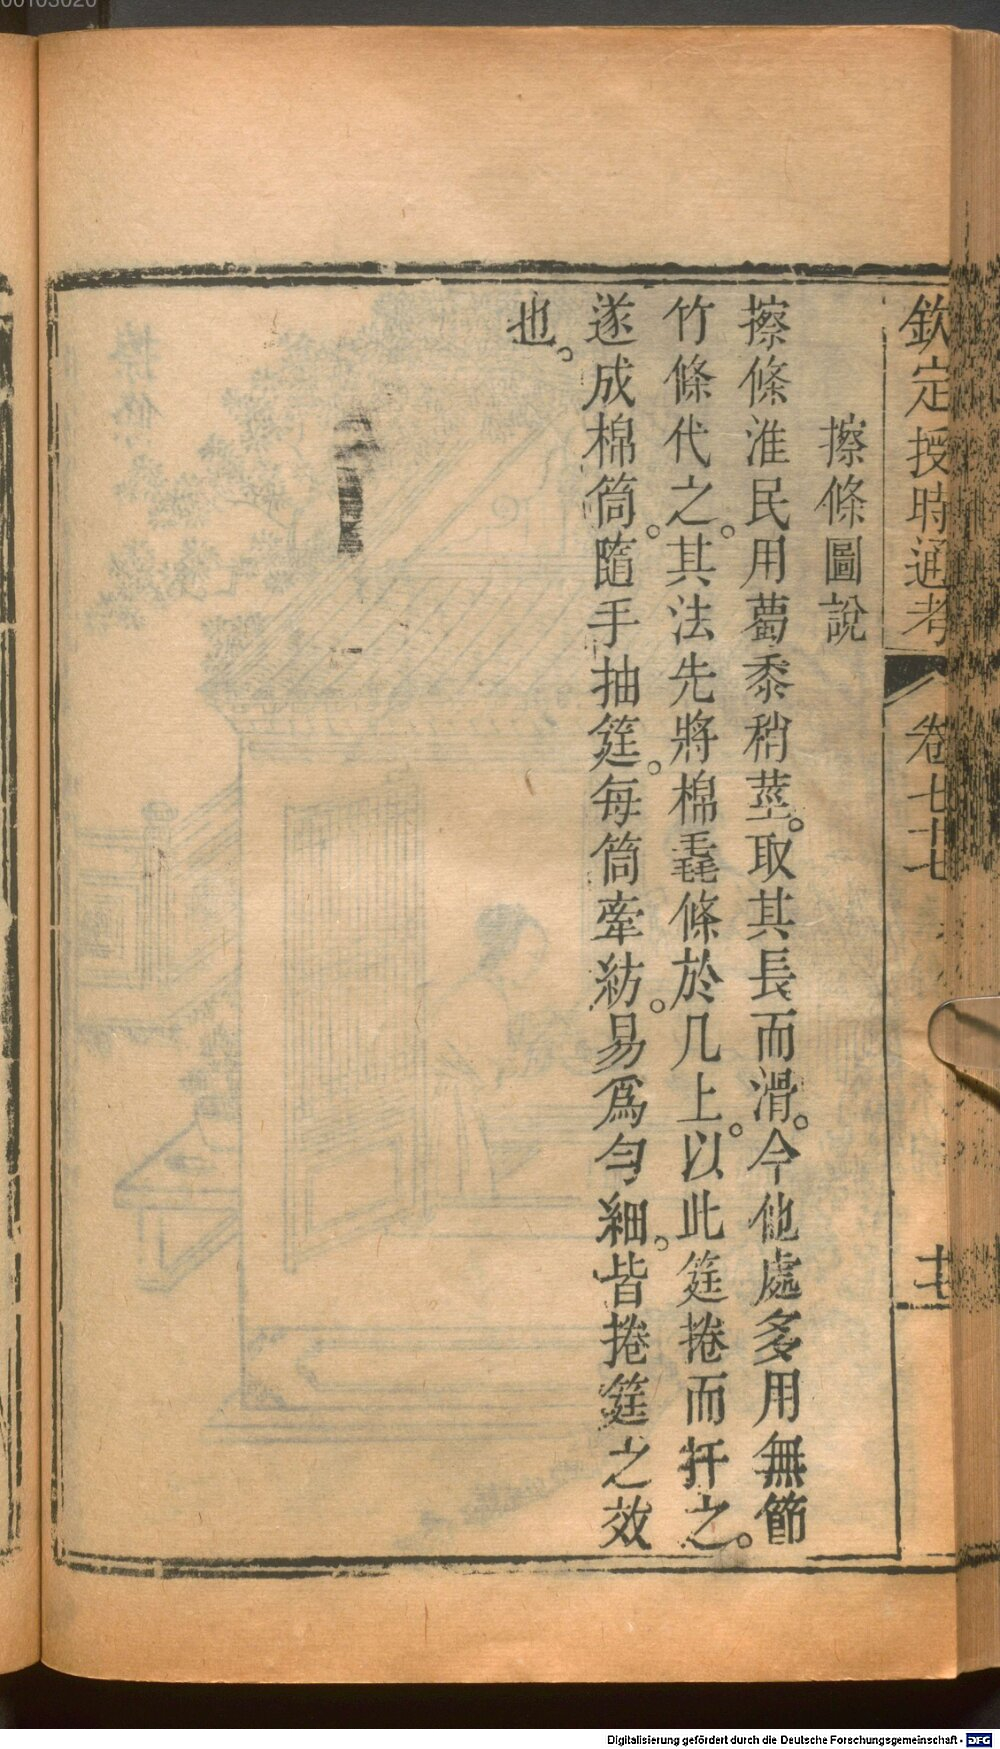 欽定授時通考 卷七十七
擦條圖說
擦條淮民用蔔黍稍莖。取其長而滑。今他處多用無節
竹條代之。其法先將棉毳條於几上。以此筳捲而扞之。
遂成棉筒。隨手抽筳。每筒牽紡。易爲勻細。皆捲筳之效
也。
Digitalisierung gefördert durch die Deutsche Forschungsgemeinschaft - DFG